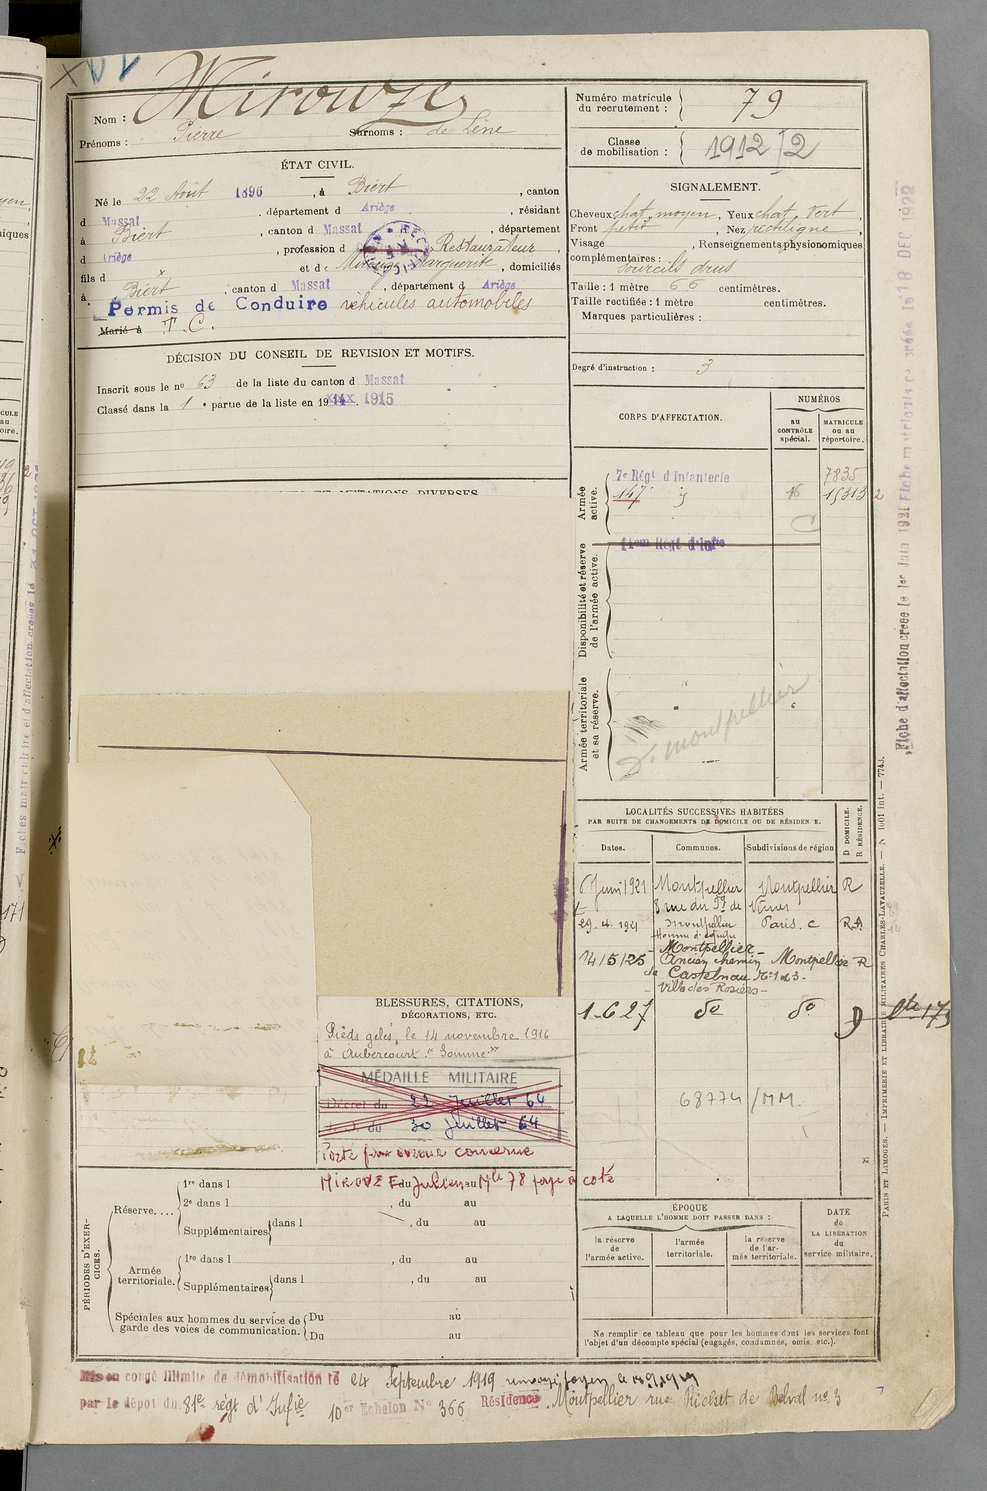 Nom : Mirouze
Prénoms : Pierre Surnoms : de Léne
ÉTAT CIVIL.
Né le 22 Août 1896, à Biert, canton
d Massat, département d Ariège, résidant
à Biert, canton d Massat, département
d Ariège, profession d Restaurateur,
fils d x et de Mirouze Marguerite, domiciliés
à Biert, canton d Massat, département d Ariège
Permis de Conduire véhicules automobiles
Marié à T. C.
DÉCISION DU CONSEIL DE REVISION ET MOTIFS.
Inscrit sous le no 63 de la liste du canton d Massat
Classé dans la 1 e partie de la liste en 1914 xxx 1915
Numéro matricule
du recrutement : 79
Classe
de mobilisation : 1912/2
SIGNALEMENT.
Cheveux chat. moyen, Yeux chat. vert,
Front petit, Nez rectiligne,
Visage , Renseignements physionomiques
complémentaires :
Sourcils drus
Taille : 1 mètre 66 centimètres.
Taille rectifiée : 1 mètre centimètres.
Marques particulières :
Degré d'instruction : 3
CORPS D'AFFECTATION.
NUMÉROS
au
CONTRÔLE
spécial.
MATRICULE
ou au
répertoire.
Armée
active.
7e Régt d'Infanterie 7835
147 16 15313 2
Disponibilité et réserve
de l'armée active.
Armée territoriale
et sa réserve.
D. Montpellier
LOCALITÉS SUCCESSIVES HABITÉES
PAR SUITE DE CHANGEMENTS DE DOMICILE OU DE RÉSIDENCE.
D DOMICILE.
R RÉSIDENCE.
Dates. Communes. Subdivisions de région
6 Juin 1921 Montpellier Montpellier R
8 rue du Fg de Nîmes
29.4.1921 Montpellier Paris. C R.A
14/5/25 Montpellier Montpellier R
Ancien chemin
de Castelnau No 1 et 3
Villa des Rosiers
1-6 27 do do D
68774/MM.
BLESSURES, CITATIONS,
DÉCORATIONS, ETC.
Pieds gelés, le 14 novembre 1916
à Aubercourt "Somme"
MÉDAILLE MILITAIRE
Décret du 22 Juillet 64
J. O. du 30 Juillet 64
Porté par erreur concerne
MIROUZE Julien Mle 78 page à coté
PÉRIODES D'EXERCICES.
Réserve....
1re dans l , du au
2e dans l , du au
Supplémentaires dans l , du au
Armée
territoriale.
1re dans l , du au
Supplémentaires dans l , du au
Spéciales aux hommes du service de
garde des voies de communication.
Du au
Du au
ÉPOQUE
A LAQUELLE L'HOMME DOIT PASSER DANS :
la réserve
de
l'armée active.
l'armée
territoriale.
la réserve
de l'ar-
mée territoriale.
DATE
de
LA LIBÉRATION
du
service militaire.
Ne remplir ce tableau que pour les hommes dont les services font
l'objet d'un décompte spécial (engagés, condamnés, omis, etc.).
Mis en congé illimité de démobilisation le 24 Septembre 1919
par le dépot du 81e régt d'Infie 10er Echelon No 366 Résidence Montpellier rue No 3
Fiche d'affectation créée le 1er Juin 1921 Fiche matriculaire créée le 18 DEC 1922
PARIS ET LIMOGES. — IMPRIMERIE ET LIBRAIRIE MILITAIRES CHARLES-LAVAUZELLE. — N 1001 int. — 7743.